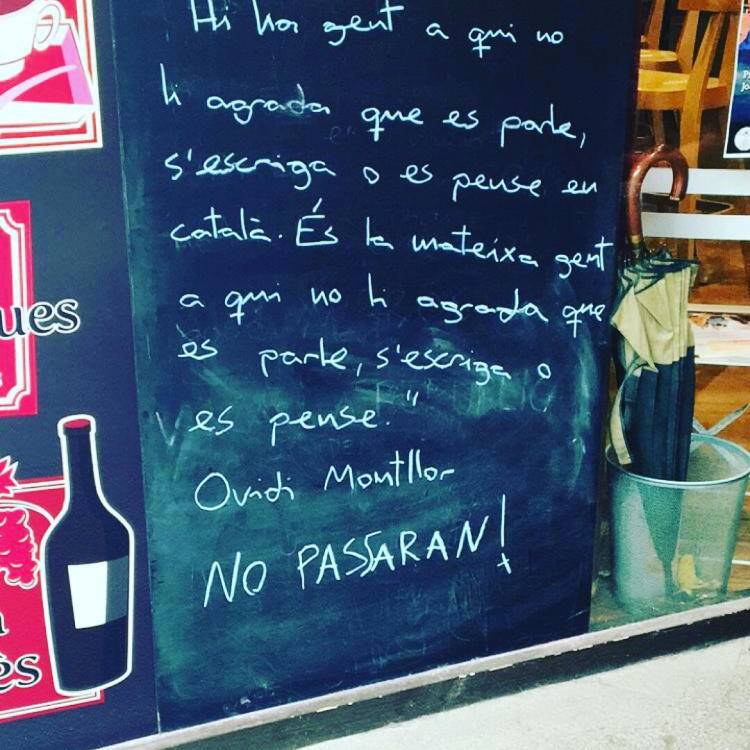 Hi ha gent a qui no
li agrada que es parle,
s'escriga o es pense en
català. És la mateixa gent
a qui no li agrada que
es parle, s'escriga o
es pense."
Ovidi Montllor
NO PASSARAN!
ues
ès